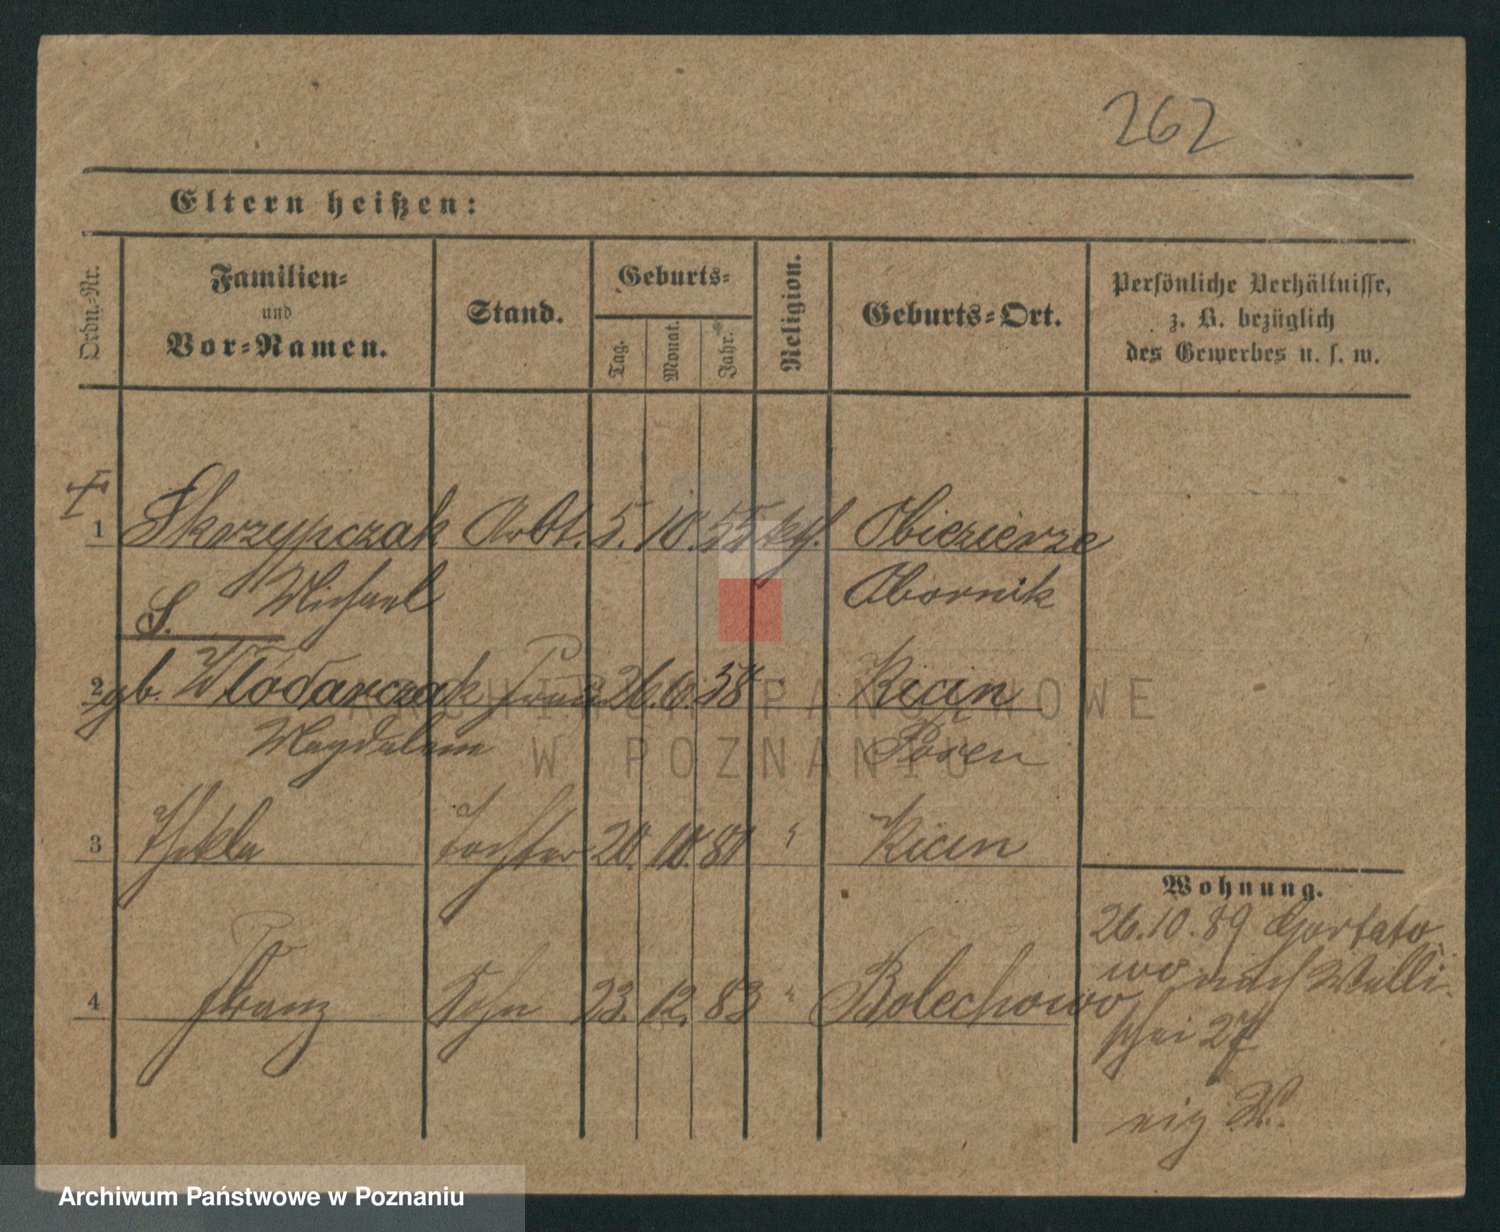 262
Eltern heißen:
Ordn.-Nr.
Familien- und Vor-Namen.
Stand.
Geburts-
Tag.
Monat.
Jahr.
Religion.
Geburts-Ort.
Persönliche Verhältnisse,
z. B. bezüglich
des Gewerbes u. s. w.
1 Skrzypczak Arbt. 5. 10. 55 kth. Obiezierze
S. Michael Obornik
2 gb. Wlodarczak Frau 26. 6. 58 " Kicin
Magdalena Posen
3 Thekla Tochter 20. 10. 81 " Kicin
4 Franz Sohn 23. 12. 83 " Bolechowo
Wohnung.
26.10.89 Gortato
wo nach Walli
schei 27
eig W.
ARCHIWUM PAŃSTWOWE
W POZNANIU
Archiwum Państwowe w Poznaniu